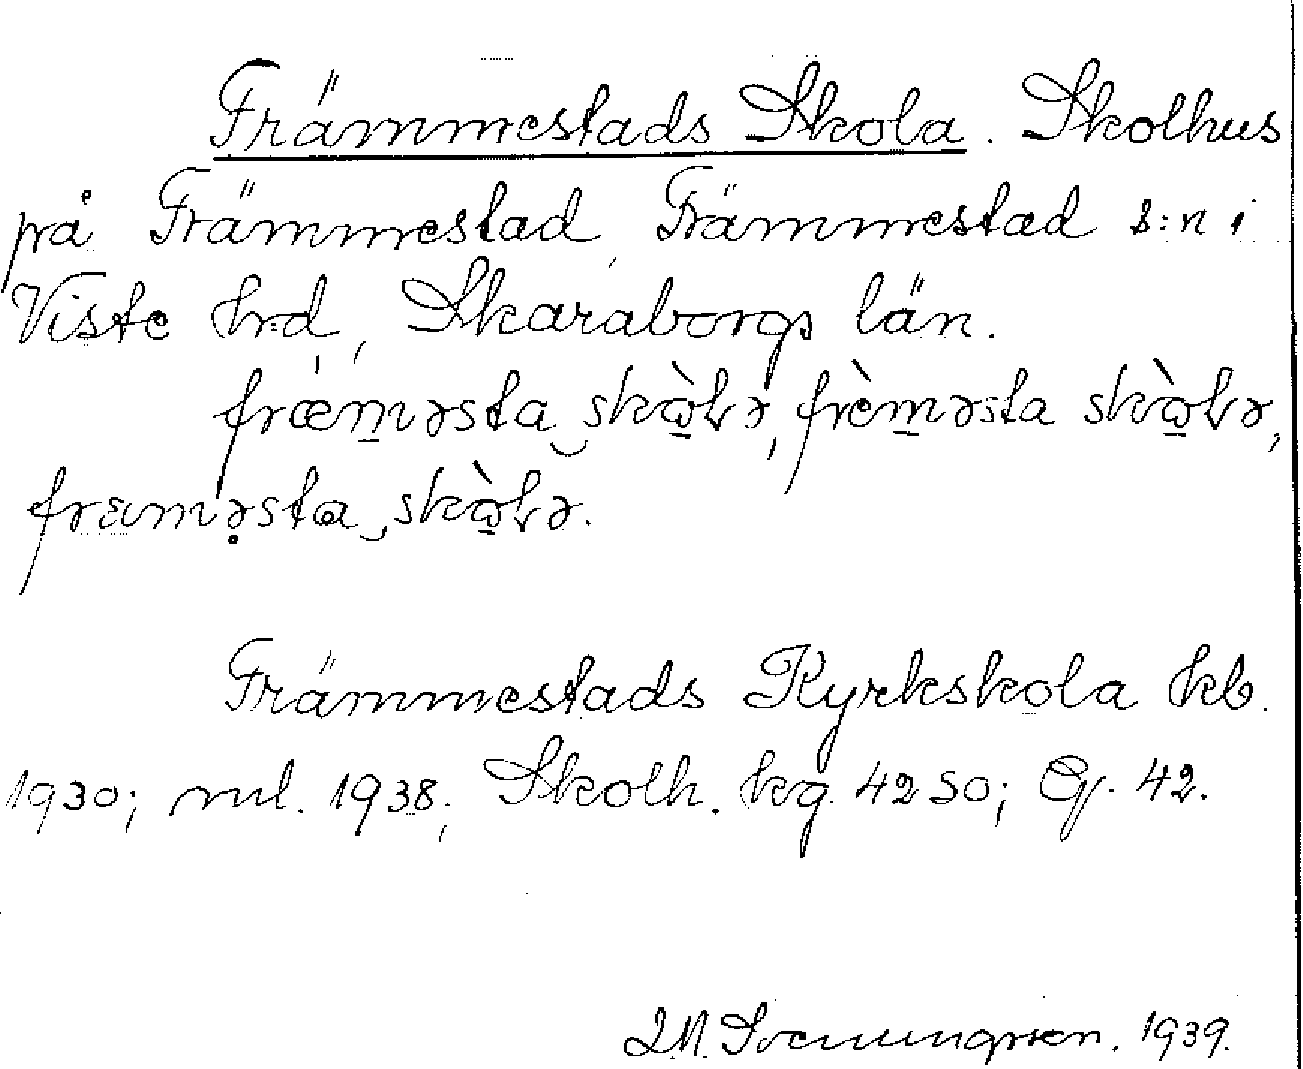 Främmestads Skola. Skolhus
på Främmestad, Främmestad s:n i
Viste hrd, Skaraborgs län.
fræ̀m̲əsta‿skὼ̲ɬə, frèm̲əsta skὼ̲ɬə,
framəsta‿skὼ̲ɬə.
Främmestads Kyrkskola kb.
1930; rul. 1938; Skolh. kg. 4250; G. 42.
Svenungsson. 1939.